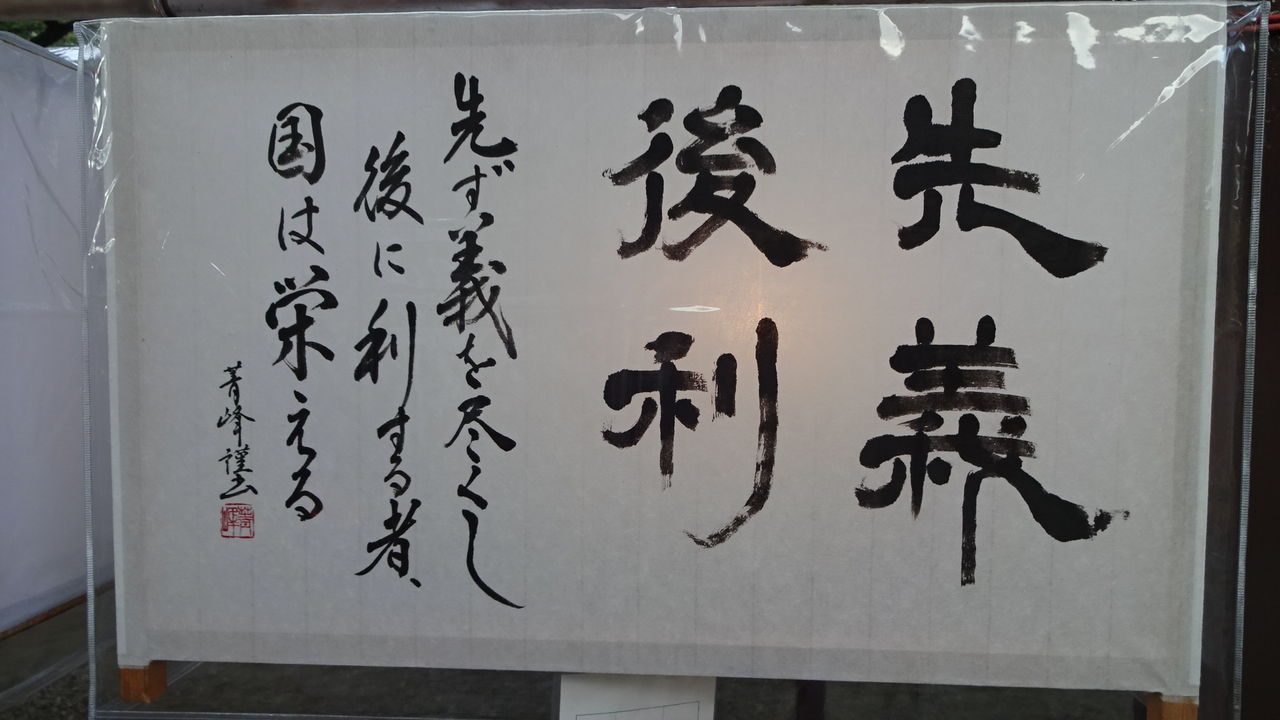 先義
後利
先ず義を尽くし
後に利する者、
国は栄える
菁峰謹書